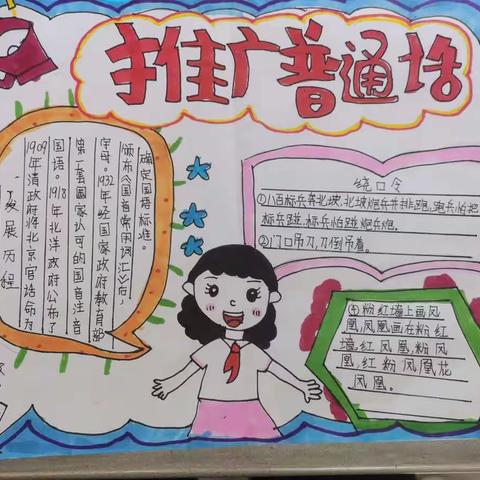 推广普通话
发展历程
1909年清政府将北京官话命为
国语。1918年北洋政府公布了
第一套國家认可的国音注音
字母。1932年经国家政府教育部
颁布《国首常用词汇》后,
确定国语标准。
绕口令
①八百标兵奔北坡,北坡炮兵并排跑,炮兵怕把
标兵碰,标兵怕碰炮兵炮。
②门口吊刀,刀倒吊着。
④粉红墙上画凤
凰,凤凰画在粉红
墙,红凤凰,粉凤
凰,红粉凤凰花
凤凰。